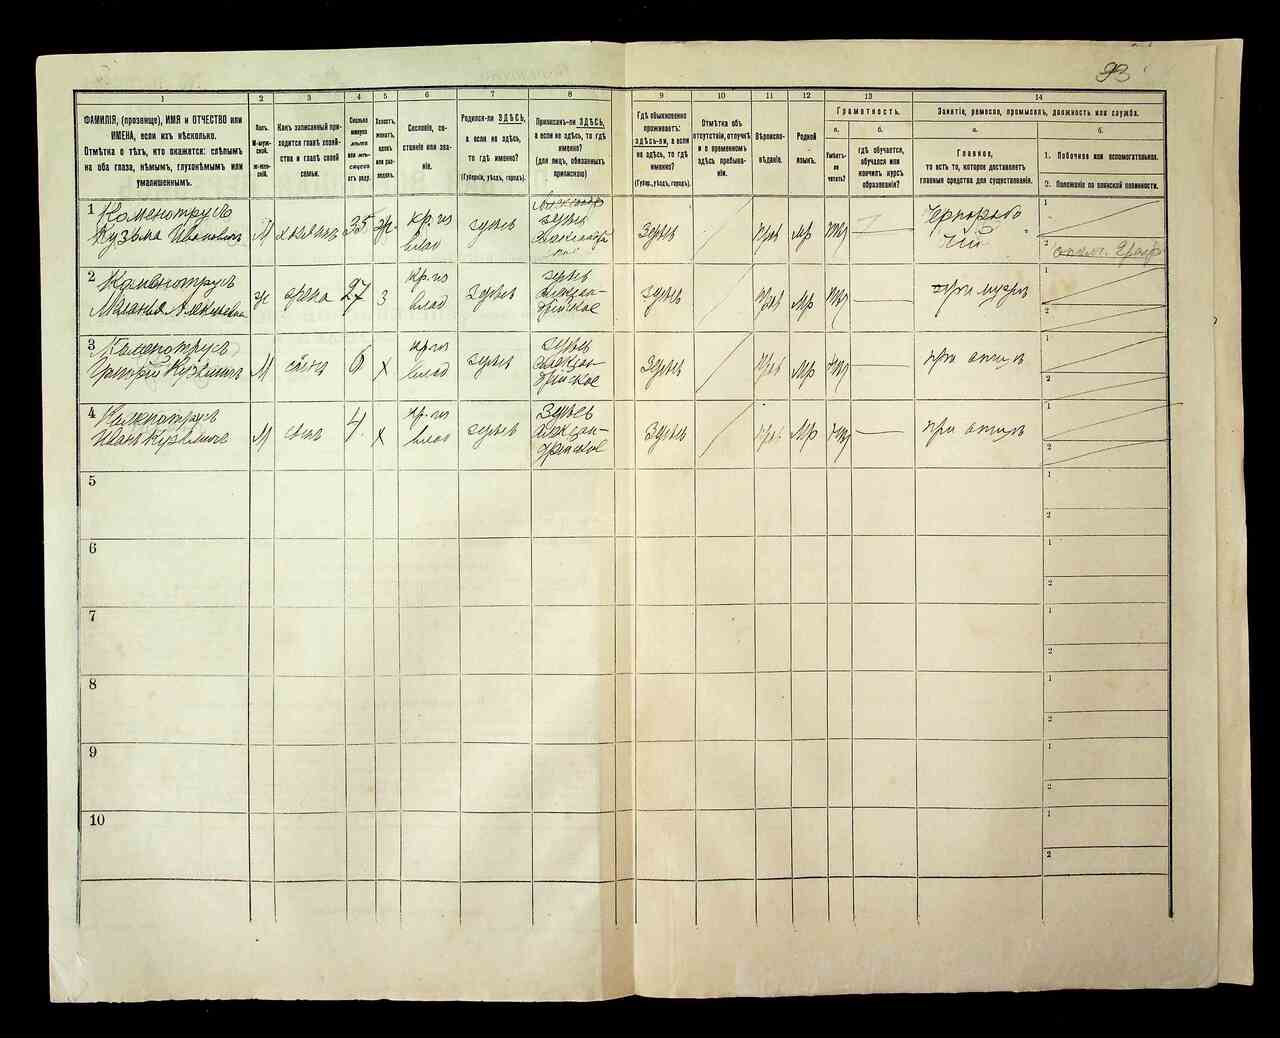 93
1
2
3
4
5
6
7
8
9
10
11
12
13
14
ФАМИЛІЯ, (прозвище), ИМЯ и ОТЧЕСТВО или
ИМЕНА, если ихъ нѣсколько.
Отмѣтка о тѣхъ, кто окажется: слѣпымъ
на оба глаза, нѣмымъ, глухонѣмымъ или
умалишеннымъ.
Полъ.
М-муж-
ской.
Ж-жен-
скій.
Какъ записанный при-
ходится главѣ хозяй-
ства и главѣ своей
семьи.
Сколько
минуло
лѣтъ
или мѣ-
сяцевъ
отъ роду.
Холостъ,
женатъ,
вдовъ
или раз-
веденъ.
Сословіе, со-
стояніе или зва-
ніе.
Родился-ли ЗДѢСЬ,
а если не здѣсь,
то гдѣ именно?
(Губернія, уѣздъ, городъ).
Приписанъ-ли ЗДѢСЬ,
а если не здѣсь, то гдѣ
именно?
(для лицъ, обязанныхъ
припискою)
Гдѣ обыкновенно
проживаетъ:
ЗДѢСЬ-ли, а если
не здѣсь, то гдѣ
именно?
(Губер., уѣздъ, городъ).
Отмѣтка объ
отсутствіи, отлучкѣ
и о временномъ
здѣсь пребыва-
ніи.
Вѣроиспо-
вѣданіе.
Родной
языкъ.
Грамотность.
а.
Умѣетъ-
ли
читать?
б.
гдѣ обучается,
обучался или
кончилъ курсъ
образованія?
Занятіе, ремесло, промыселъ, должность или служба.
а.
Главное,
то есть то, которое доставляетъ
главныя средства для существованія.
б.
1. Побочное или вспомогательное.
2. Положеніе по воинской повинности.
1 Каменотрусъ
Кузьма Ивановичъ М хозяинъ 35 ж кр. из влад здѣсь здѣсь Здѣсь Прав мр Чернорабо
чій
1
2
2 Каменотрусъ
Маланія Алексѣевна ж жена 27 з кр. из влад Здѣсь здѣсь Алексан-
дрійское здѣсь Прав Мр при мужѣ
1
2
3 Каменотрусъ
Григорій Кузьмичъ М сынъ 6 х кр. из влад здѣсь здѣсь Алексан-
дрійское Здѣсь Прав Мр при отцѣ
1
2
4 Каменотрусъ
Иванъ Кузьмичъ М сынъ 4 х кр. из влад здѣсь Здѣсь Алексан-
дрійское Здѣсь Прав Мр при отцѣ
1
2
5
1
2
6
1
2
7
1
2
8
1
2
9
1
2
10
1
2